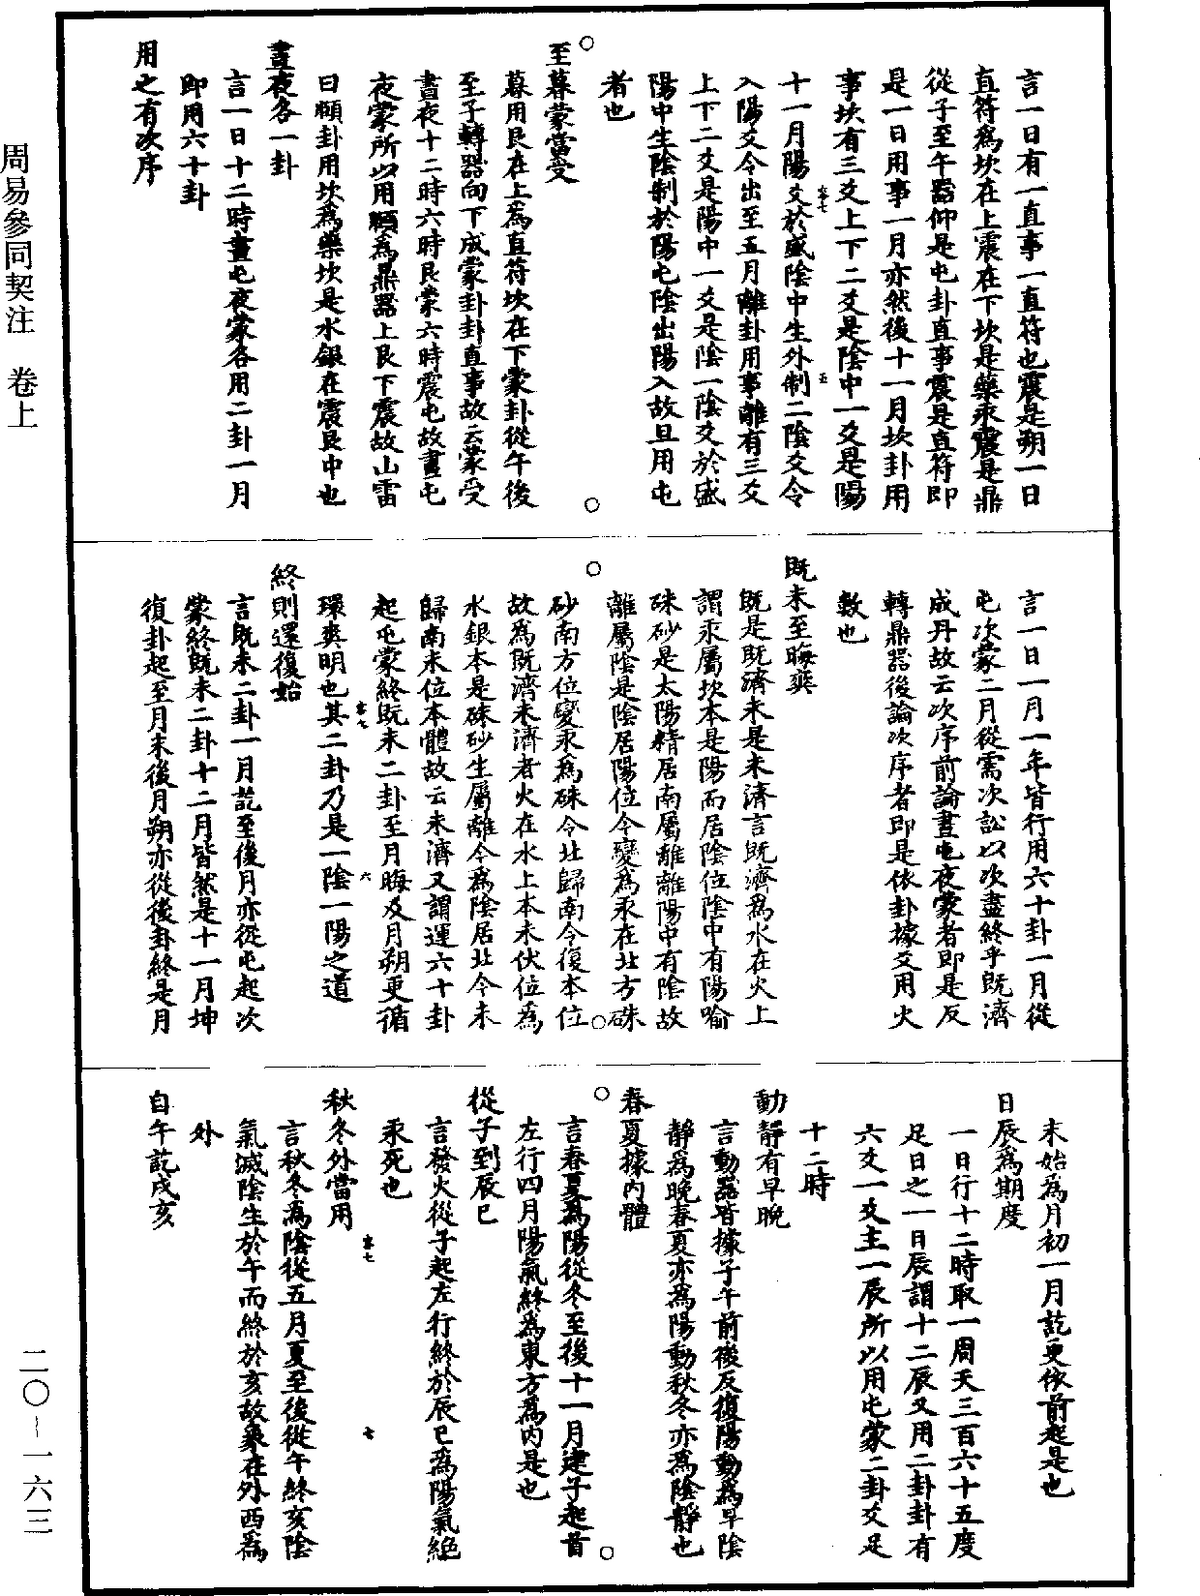 周易參同契注　卷上
二〇-一六三
言一日有一直事一直符也震是朔一日
直符為坎在上震在下坎是藥汞震是鼎
從子至午器仰是屯卦直事震是直符即
是一日用事一月亦然後十一月坎卦用
事坎有三爻上下二爻是陰中一爻是陽
十一月陽爻於盛陰中生外制二陰爻令
入陽爻令出至五月離卦用事離有三爻
上下二爻是陽中一爻是陰一陰爻於盛
陽中生陰制於陽屯陰出陽入故旦用屯
者也
至暮蒙當受
暮用艮在上為直符坎在下蒙卦從午後
至子轉器向下成蒙卦卦直事故云蒙受
晝夜十二時六時艮蒙六時震屯故晝屯
夜蒙所以用頤為鼎器上艮下震故山雷
曰頤卦用坎為藥坎是水銀在震艮中也
晝夜各一卦
言一日十二時晝屯夜蒙各用二卦一月
即用六十卦
用之有次序
言一日一月一年皆行用六十卦一月從
屯次蒙二月從需次訟以次盡終乎既濟
成丹故云次序前論晝屯夜蒙者即是反
轉鼎器後論次序者即是依卦據爻用火
數也
既未至晦爽
既是既濟未是未濟言既濟為水在火上
謂汞屬坎本是陽而居陰位陰中有陽喻
硃砂是太陽精居南屬離離陽中有陰故
離屬陰是陰居陽位今變為汞在北方硃
砂南方位變汞為硃令北歸南令復本位
故為既濟未濟者火在水上本未伏位為
水銀本是硃砂生屬離今為陰居北今未
歸南未位本體故云未濟又謂運六十卦
起屯蒙終既未二卦至月晦及月朔更循
環爽明也其二卦乃是一陰一陽之道
終則還復始
言既未二卦一月訖至後月亦從屯起次
蒙終既未二卦十二月皆然是十一月坤
復卦起至月末後月朔亦從後卦終是月
末始為月初一月訖更依前起是也
日辰為期度
一日行十二時取一周天三百六十五度
足日之一日辰謂十二辰又用二卦卦有
六爻一爻主一辰所以用屯蒙二卦爻足
十二時
動靜有早晚
言動器皆據子午前後反復陽動為早陰
靜為晚春夏亦為陽動秋冬亦為陰靜也
春夏據內體
言春夏為陽從冬至後十一月建子起首
左行四月陽氣終為東方為內是也
從子到辰巳
言發火從子起左行終於辰巳為陽氣絕
汞死也
秋冬外當用
言秋冬為陰從五月夏至後從午終亥陰
氣滅陰生於午而終於亥故象在外西為
外
自午訖戌亥